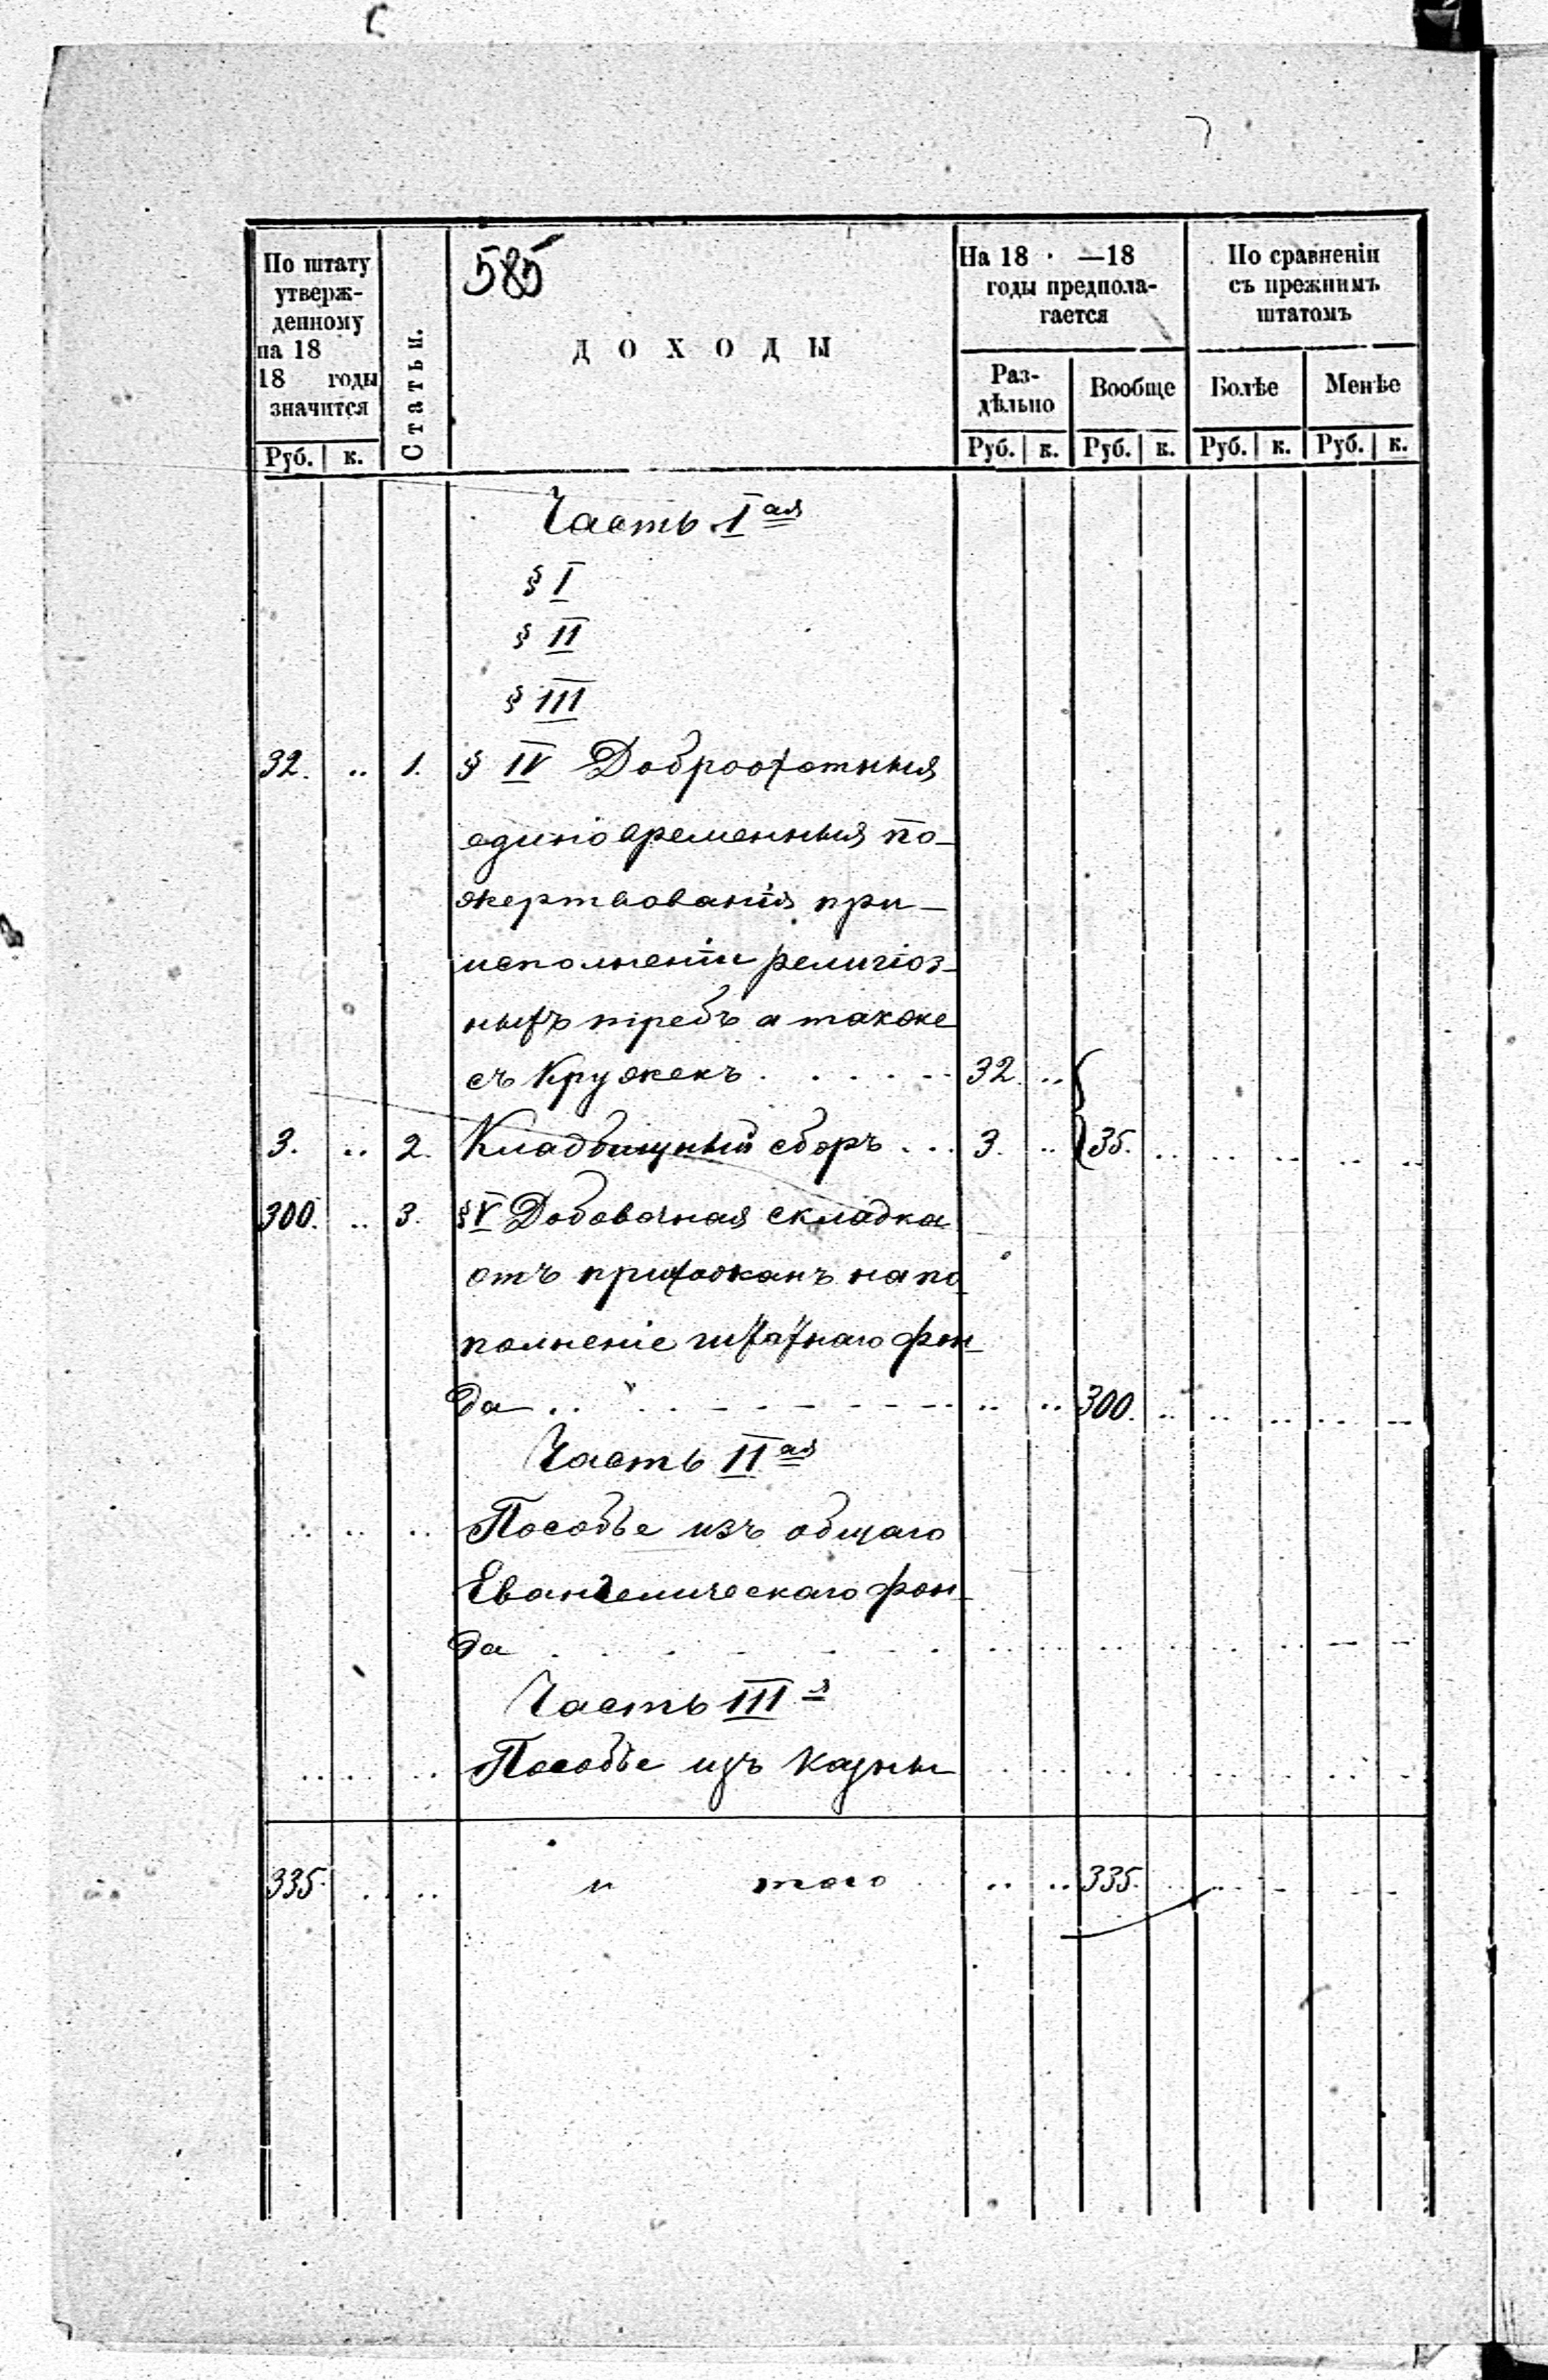 585
По штату
утверж-
денному
на 18
18 годы
значится
Руб. к.
Статьи.
ДОХОДЫ
На 18 —18
годы предпола-
гается
Раз-
дѣльно
Вообще
Руб. к. Руб. к.
По сравненіи
съ прежнимъ
штатомъ
Болѣе
Менѣе
Руб. к. Руб. к.
Часть I ая
§ I
§ II
§ III
32. .. 1. § IV Доброхотныя
единовременныя по-
жертвованія при-
исполненіи религіоз-
ныхъ требъ а также
съ Кружекъ . . . . . 32. ..
3. .. 2. Кладбищный сборъ . . . 3. .. 35. .. .. .. .. ..
300. .. 3. § V Добавочная складка
отъ прихожанъ на по
полненіе штатнаго фон-
да .. .. 300. .. .. .. .. ..
Часть II ая
.. .. .. Пособіе изъ общаго
Евангелическаго фон-
да . . . . . . .
Часть III я
.. .. .. Пособіе изъ казны
335. .. .. и того .. .. 335. .. .. .. .. ..